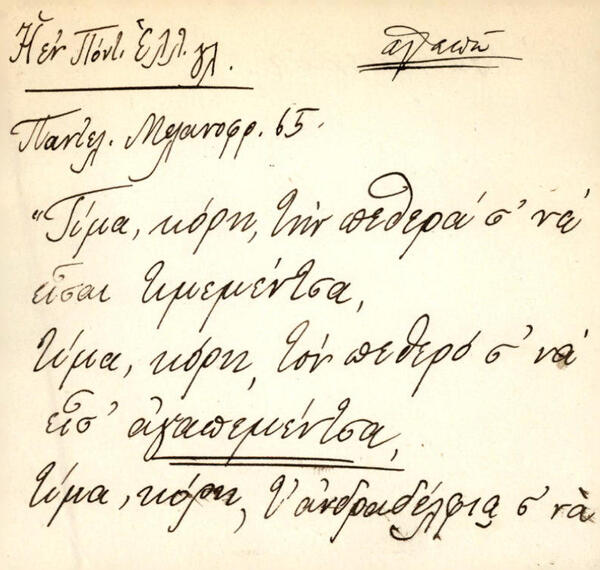 Ἡ ἐν Πόντ. Ἑλλ. γλ.
ἀγαπῶ
Παντελ. Μελανοφρ. 65.
"Τίμα, κόρη, τὴν πεθερά σ' νὰ
εἶσαι τιμεμέντσα,
τίμα, κόρη, τὸν πεθερό σ' νὰ
εἶσ' ἀγαπεμέντσα,
τίμα, κόρη, τ' ἀνδραδέλφια σ' νὰ